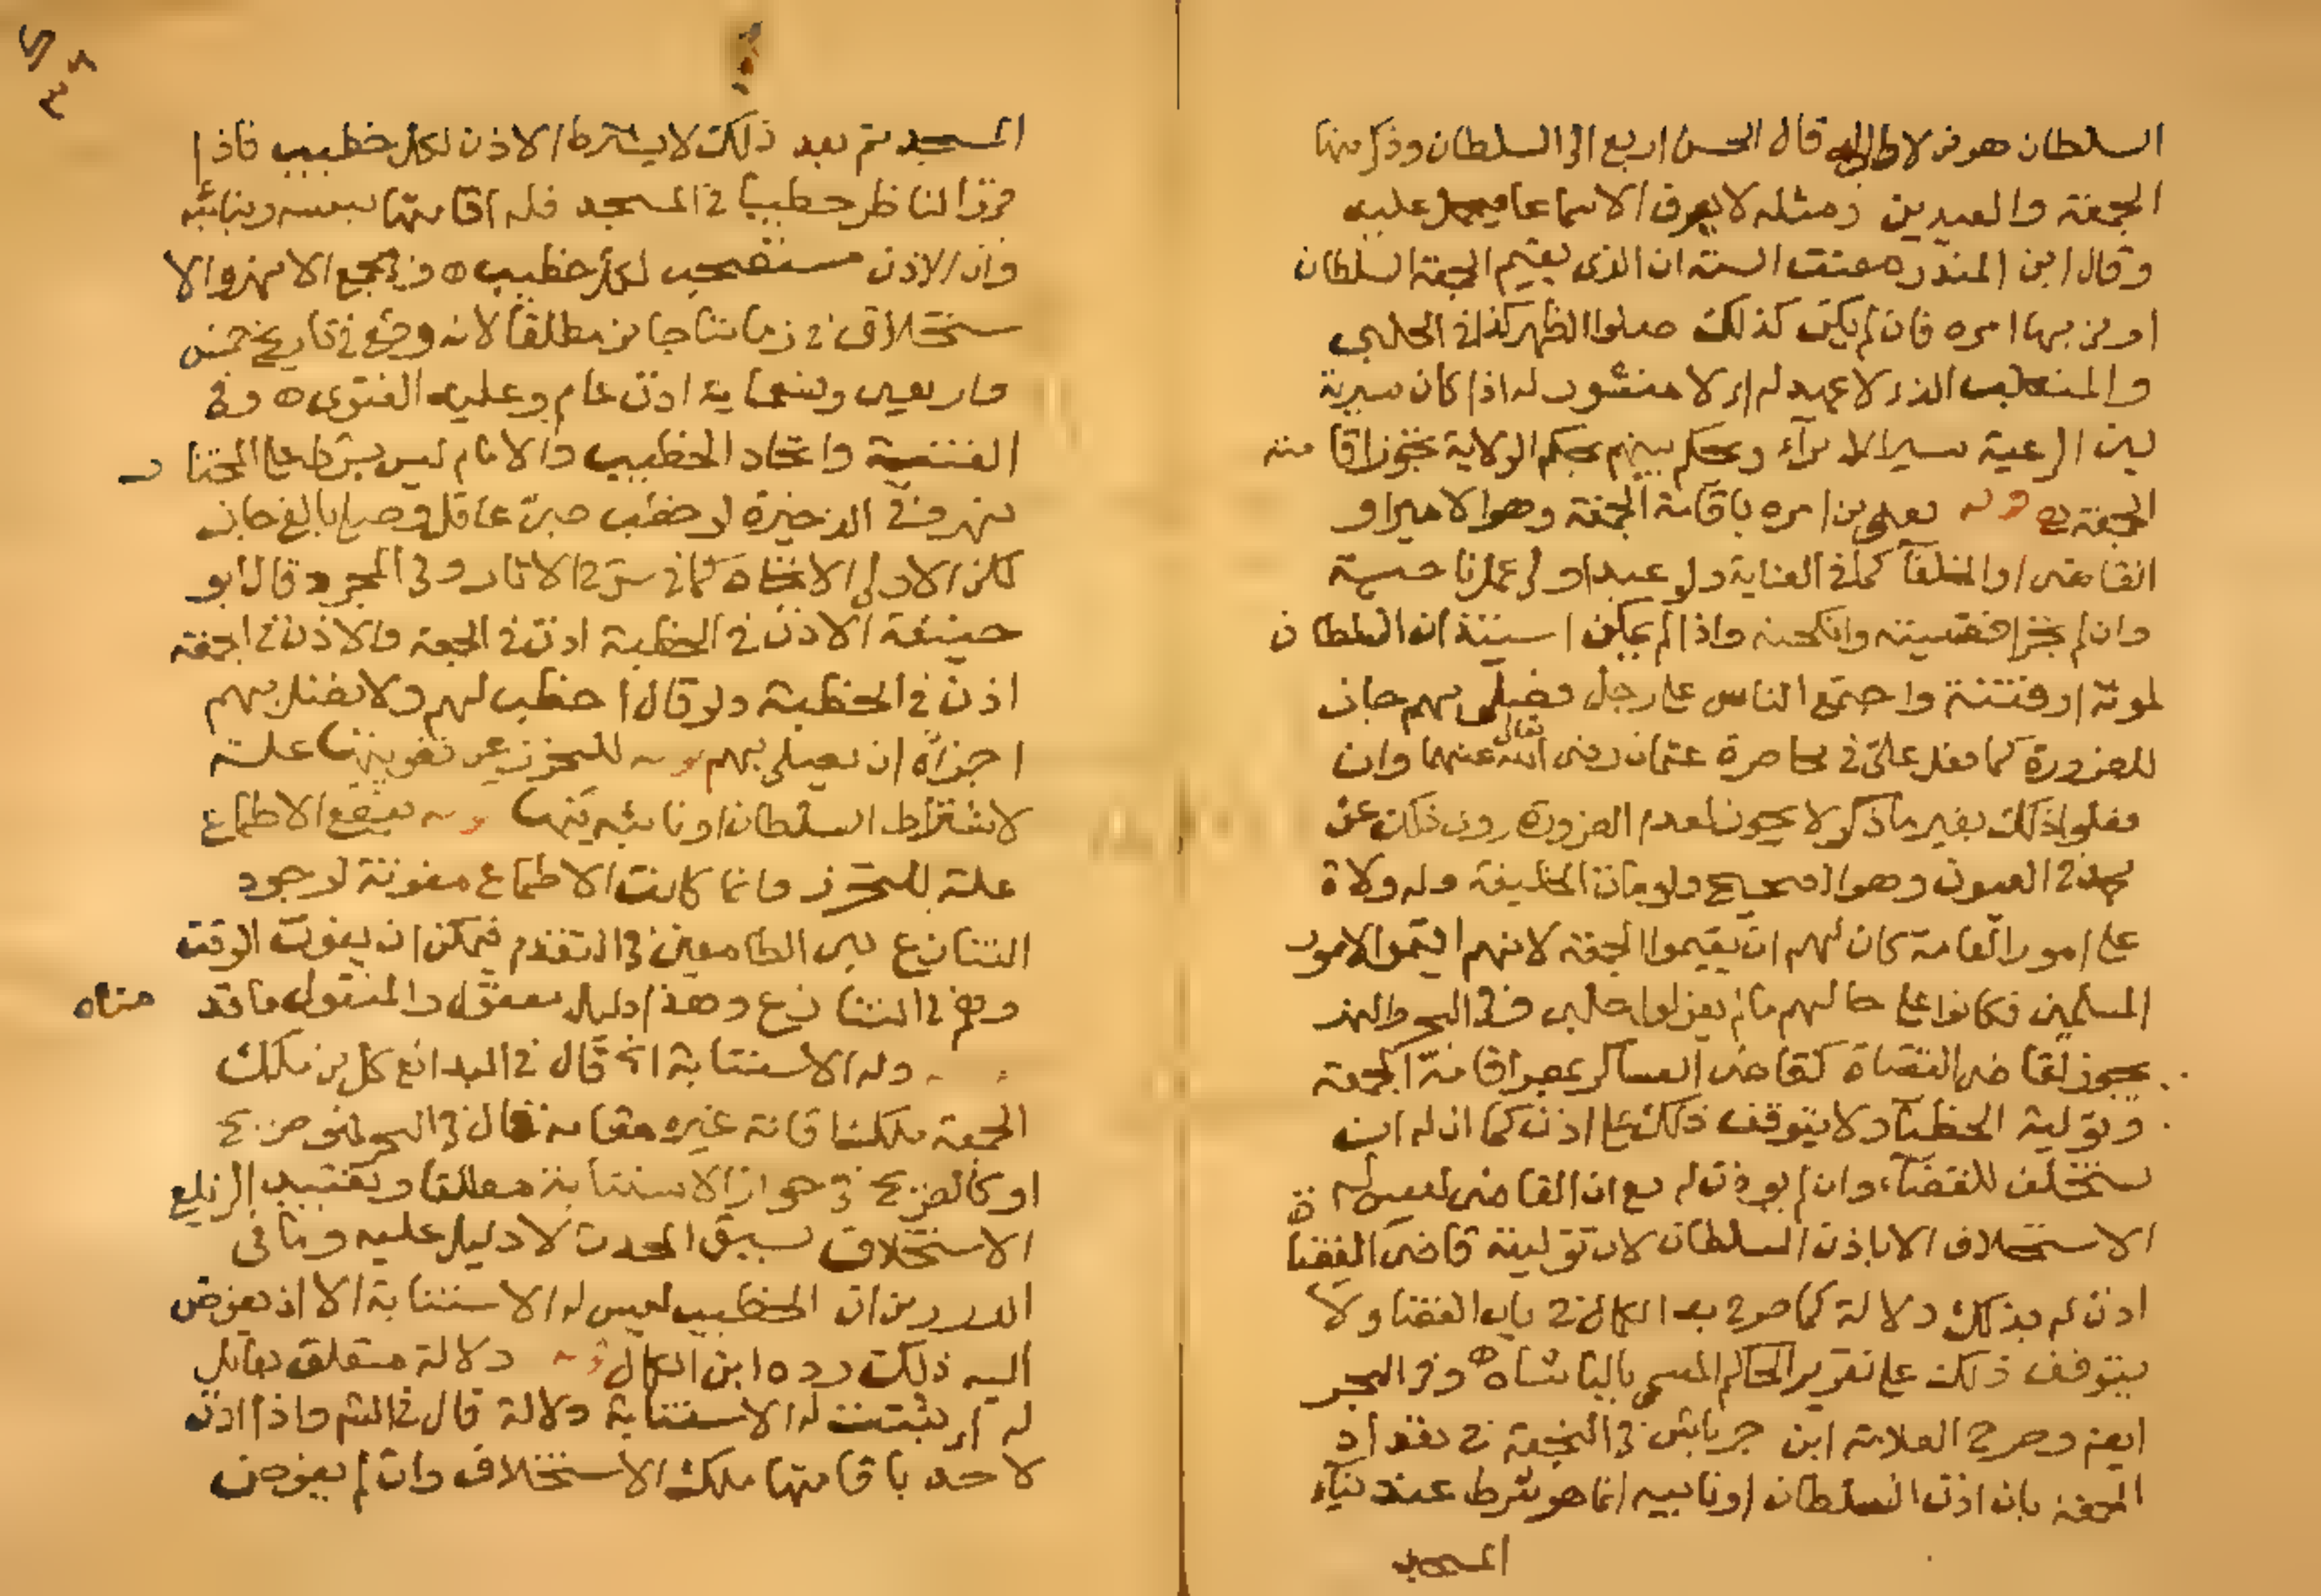 السلطان هو من لا والي قال الحسن اربع الى السلطان وذكر منها
الجمعة والعيدين ومثله لا يعرف الا سماعا فيحمل عليه
وقال ابن المنذر مضت السنة ان الذى يقيم الجمعة السلطان
او من بها امره فان لم يكن كذلك صلوا الظهر كذا في الحلبي
والمتغلب الذى لا عهد له اى لا منشور له اذا كان سيرته
بين الرعية سيرة الامراء ويحكم بينهم بحكم الولاية تجوز اقامته
الجمعة يعني من امره باقامة الجمعة وهو الامير او
القاضى او الخلفآ كما في العناية ولو عبدا ولى عمل ناحية
وان لم تجز اقضيته وانكحته واذا لم يمكن استيذان السلطان
لموته او فتنة واجتمع الناس على رجل فصلى بهم جاز
للضرورة كما فعل علىّ في محاصرة عثمان رضى الله تعالى عنهما وان
فعلوا ذلك بغير ما ذكر لا يجوز لعدم الضرورة روى ذلك عن
محمد في العيون وهو الصحيح ولو مات الخليفة وله ولاة
على امور العامة كان لهم ان يقيموا الجمعة لانهم اقيموا لامور
المسلمين فكانوا على حالهم ما لم يعزلوا حلبى وفى البحر والنهر
يجوز لقاضى القضاة كقاضى العساكر بمصر اقامة الجمعة
وتولية الخطبآ ولا يتوقف ذلك على اذن كما ان له ان
يستخلف للقضآء وان لم يوذن له مع ان القاضى ليس له
الاستخلاف الا باذن السلطان لان تولية قاضى القضاة
اذن له بذلك دلالة كما صرح به الكمال في باب القضا ولا
يتوقف ذلك على تقرير الحاكم المسمى بالباشاه وفى البحر
ايضا وصرح العلامة ابن جرباش في النجعة في تعداد
الجمعة بان اذن السلطان او نايبه انما هو شرط عند بنآء
المسجد
المسجد ثم بعد ذلك لا يشترط الاذن لكل خطيب فاذا
قرر الناظر خطيبا في المسجد فله اقامتها بنفسه وبنائبه
وان الاذن مستصحب لكل خطيب ه وفى مجمع الانهر والا
ستخلاف في زماننا جائز مطلقا لانه وقع في تاريخ خمس
واربعين وتسعماية اذن عام وعليه الفتوى ه وفى
القنية واتحاد الخطيب والامام ليس بشرط على المختار
نهر وفى الذخيرة لو خطب صبىّ عاقل وصلى بالغ جاز
لكن الاولى الاتحاد كما في شرح الاثار وفى المجرد قال ابو
حنيفة الاذن في الخطبة اذن في الجمعة والاذن في الجمعة
اذن في الخطبة ولو قال اخطب لهم ولا تصل بهم
اجزاه ان يصلى بهم للتحرز عن تفويتها علة
لاشتراط السلطان او نائبه فيها بقطع الاطماع
علة للتحرز وانما كانت الاطماع مفوتة لوجود
التنازع بين الطامعين في التقدم فيمكن ان يفوت الوقت
وهم في التنازع وهذا دليل معقول والمنقول ما قدمناه
وله الاستنابة الخ قال في البدائع كل من ملك
الجمعة ملك اقامة غيره مقامه قال في البحر فهو صريح
او كالصريح في جواز الاستنابة مطلقا وتقييد الزيلعى
الاستخلاف بسبق الحدث لا دليل عليه وما فى
الدرر من ان الخطيب ليس له الاستنابة الا ان يفوض
اليه ذلك رده ابن الكمال دلالة متعلق بقابل
له اى يثبت له الاستنابة دلالة قال في الشرح واذا اذن
لاحد باقامتها ملك الاستخلاف وان لم يفوض